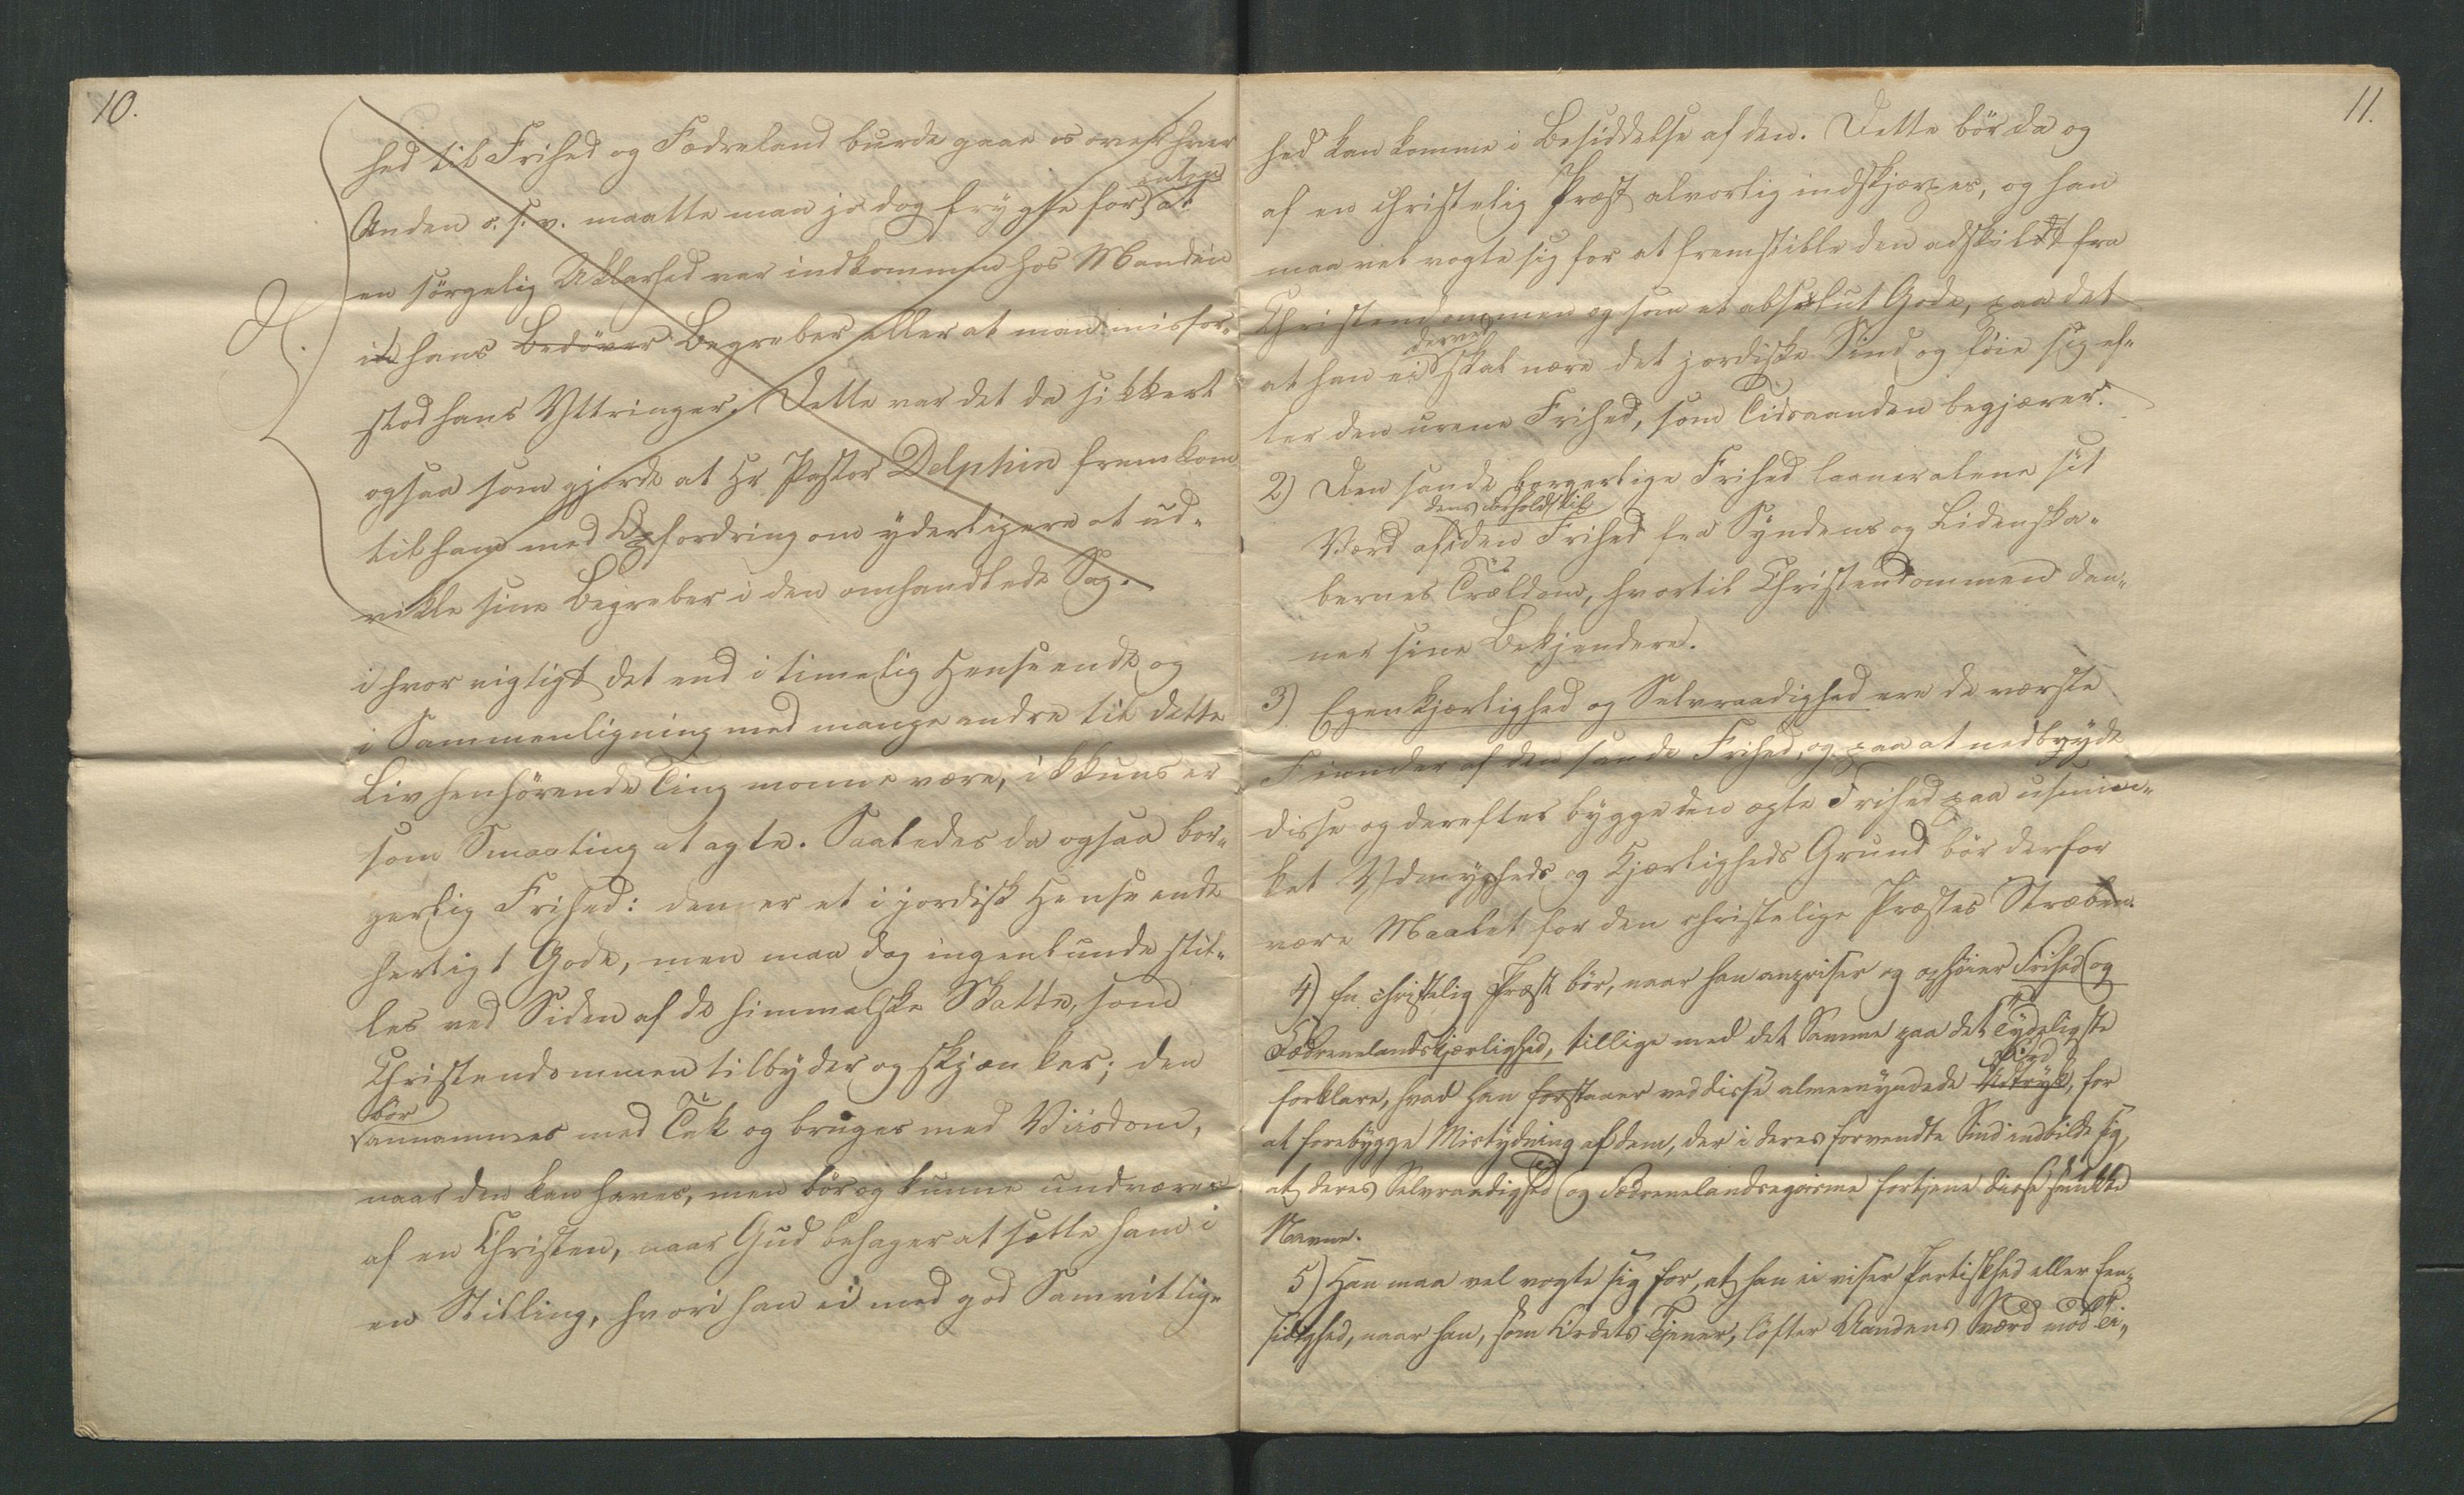 10.
hed til Frihed og Fædreland burde gaae os over hver
enten
Anden o. s. v. maatte man jo dog frygte for, at
en sörgelig Uklarhed var indkommen hos Manden
i hans Bedömer Begreber eller at man misfor-
stod hans Yttringer. Dette var det da sikkert
ogsaa som gjorde at Hr Pastor Delphin fremkom
til ham med Opfordring om yderligere at ud-
vikle sine Begreber i den omhandlede Sag.
i hvor vigtigt det end i timelig Henseende og
i Sammenligning med mange andre til dette
Liv henhörende Ting monne være, ikkuns er
som Smaating at agte. Saaledes da ogsaa bor-
gerlig Frihed: den er et i jordisk Henseende
herligt Gode, men maa dog ingenlunde stil-
les ved Siden af de himmelske Skatte, som
Christendommen tilbyder og skjænker; den
bör
annammes med Tak og bruges med Viisdom,
naar den kan haves, men bör og kunne undværes
af en Christen, naar Gud behager at sætte ham i
en Stilling, hvori han ei med god Samvittig-
11.
hed kan komme i Besiddelse af den. Dette bör da og
af en christelig Præst alvorlig indskjærpes, og han
maa vel vogte sig for at fremstille den adskilt fra
Christendommen og som et absolut Gode, paa det
derved
at han ei skal nære det jordiske Sind og föie sig ef-
ter den urene Frihed, som Tidsaanden begjærer.
2) Den sande borgerlige Frihed laaner alene sit
dens Forhold til
Værd af den Frihed fra Syndens og Lidenska-
bernes Trældom, hvortil Christendommen dan-
ner sine Bekjendere.
3) Egenkjærlighed og Selvraadighed ere de værste
Fiender af den sande Frihed, og paa at nedbryde
disse og derefter bygge den ægte Frihed paa usmin-
ket Ydmygheds og Kjærligheds Grund bör derfor
være Maalet for den christelige Præstes Stræben.
4) En christelig Præst bör, naar han anpriser og ophöier Frihed og
Fædrenelandskjærlighed, tillige med det Samme paa det Tydeligste
forklare, hvad han forstaaer ved disse almeenyndede Udtryk, for
at forebygge Mistydning af dem, der i deres forvendte Sind indbilde sig,
at deres Selvraadighed og Fædrenelandsegoisme fortjene disse smukke
Navne.
5) Han maa vel vogte sig for, at han ei viser Partiskhed eller Een-
sidighed, naar han, som Ordets Tjener, löfter Aandens Sværd mod Ti-